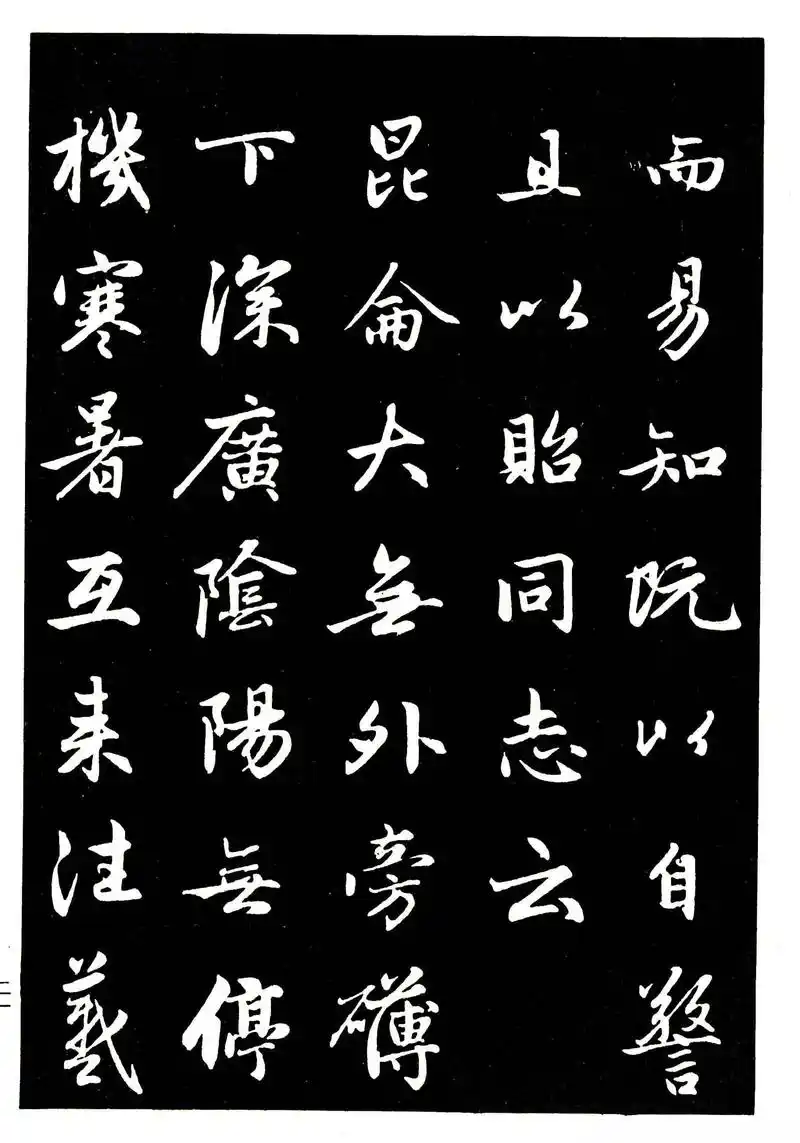 而易知既以自警
且以貽同志云
昆侖大無外旁礴
下深廣陰陽無停
機寒暑互来往羲